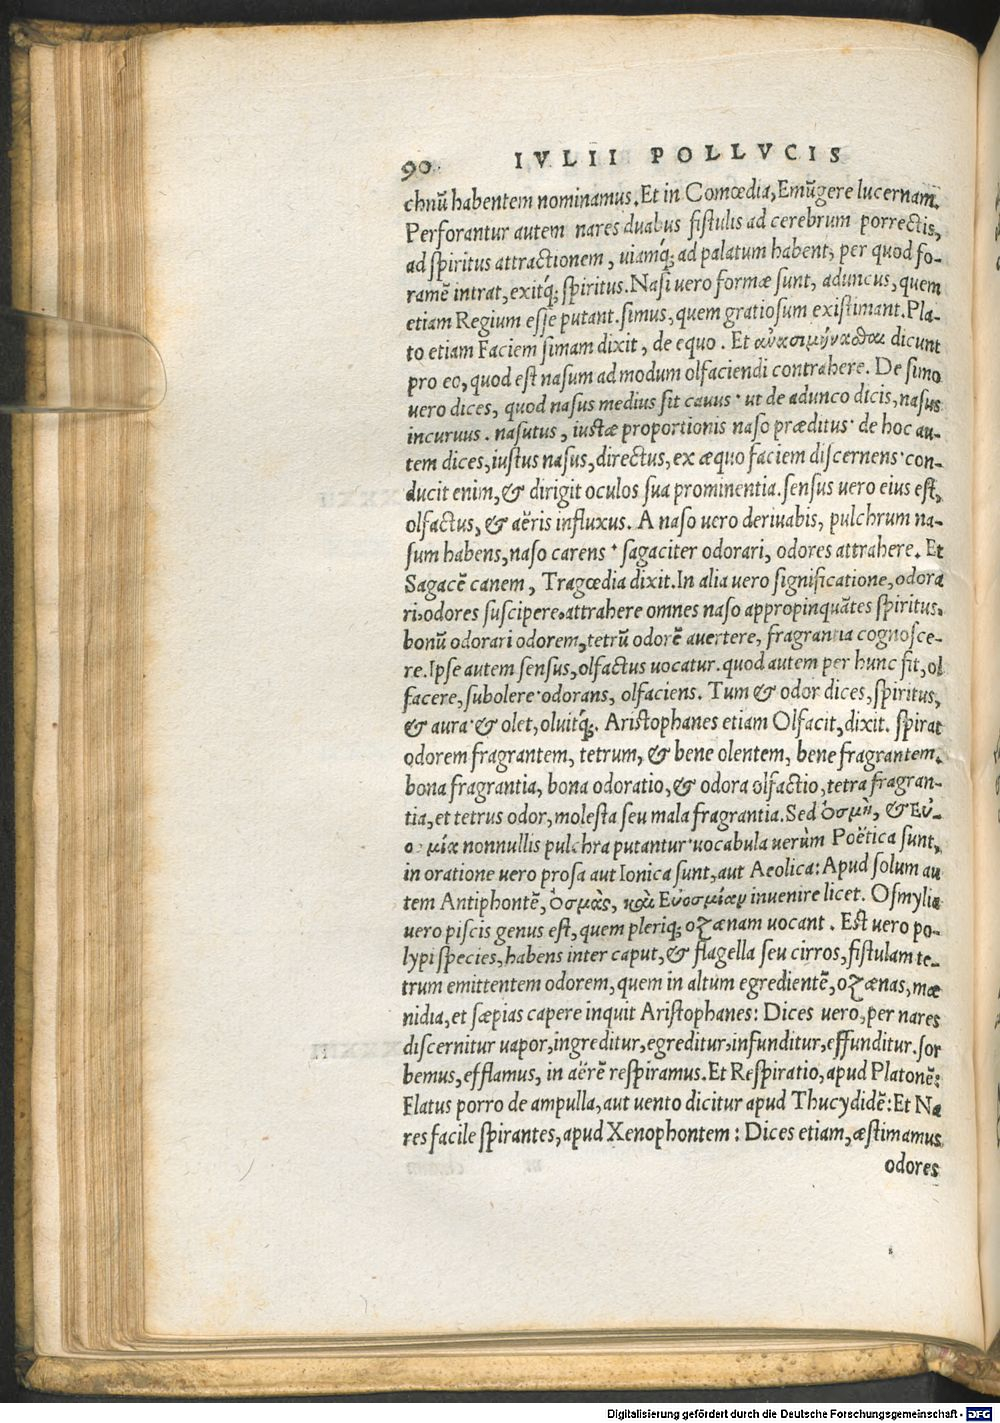 90 IVLII POLLVCIS
chnũ habentem nominamus. Et in Comœdia, Emũgere lucernam.
Perforantur autem nares duabus fistulis ad cerebrum porrectis,
ad spiritus attractionem, uiamq́; ad palatum habent, per quod fo-
ramẽ intrat, exitq́; spiritus. Nasi uero formæ sunt, aduncus, quem
etiam Regium esse putant. simus, quem gratiosum existimant. Pla-
to etiam Faciem simam dixit, de equo. Et dicunt
pro eo, quod est nasum ad modum olfaciendi contrahere. De simo
uero dices, quod nasus medius sit cauus· ut de adunco dicis, nasus
incuruus. nasutus, iustæ proportionis naso præditus· de hoc au-
tem dices, iustus nasus, directus, ex æquo faciem discernens· con-
ducit enim, & dirigit oculos sua prominentia. sensus uero eius est,
olfactus, & aëris influxus. A naso uero deriuabis, pulchrum na-
sum habens, naso carens· sagaciter odorari, odores attrahere. Et
Sagacẽ canem, Tragœdia dixit. In alia uero significatione, odora
ri, odores suscipere. attrahere omnes naso appropinquãtes spiritus.
bonũ odorari odorem, tetrũ odorẽ auertere, fragrantia cognosce-
re. Ipse autem sensus, olfactus uocatur. quod autem per hunc fit, ol
facere, subolere· odorans, olfaciens. Tum & odor dices, spiritus,
& aura· & olet, oluitq́;. Aristophanes etiam Olfacit, dixit. spirat
odorem fragrantem, tetrum, & bene olentem, bene fragrantem.
bona fragrantia, bona odoratio, & odora olfactio, tetra fragran-
tia, et tetrus odor, molesta seu mala fragrantia. Sed ὀσμὴ, & Εὐ-
οσμία nonnullis pulchra putantur· uocabula uerùm Poëtica sunt,
in oratione uero prosa aut Ionica sunt, aut Aeolica: Apud solum au
tem Antiphontẽ, ὀσμὰς, καὶ Εὐοσμίαν inuenire licet. Osmylia
uero piscis genus est, quem pleriq; oζænam uocant. Est uero po-
lypi species, habens inter caput, & flagella seu cirros, fistulam te-
trum emittentem odorem, quem in altum egredientẽ, oζænas, mæ
nidia, et sæpias capere inquit Aristophanes: Dices uero, per nares
discernitur uapor, ingreditur, egreditur, infunditur, effunditur. sor
bemus, efflamus, in aërẽ respiramus. Et Respiratio, apud Platonẽ:
Flatus porro de ampulla, aut uento dicitur apud Thucydidẽ: Et Na
res facile spirantes, apud Xenophontem: Dices etiam, æstimamus
odores
Digitalisierung gefördert durch die Deutsche Forschungsgemeinschaft - DFG